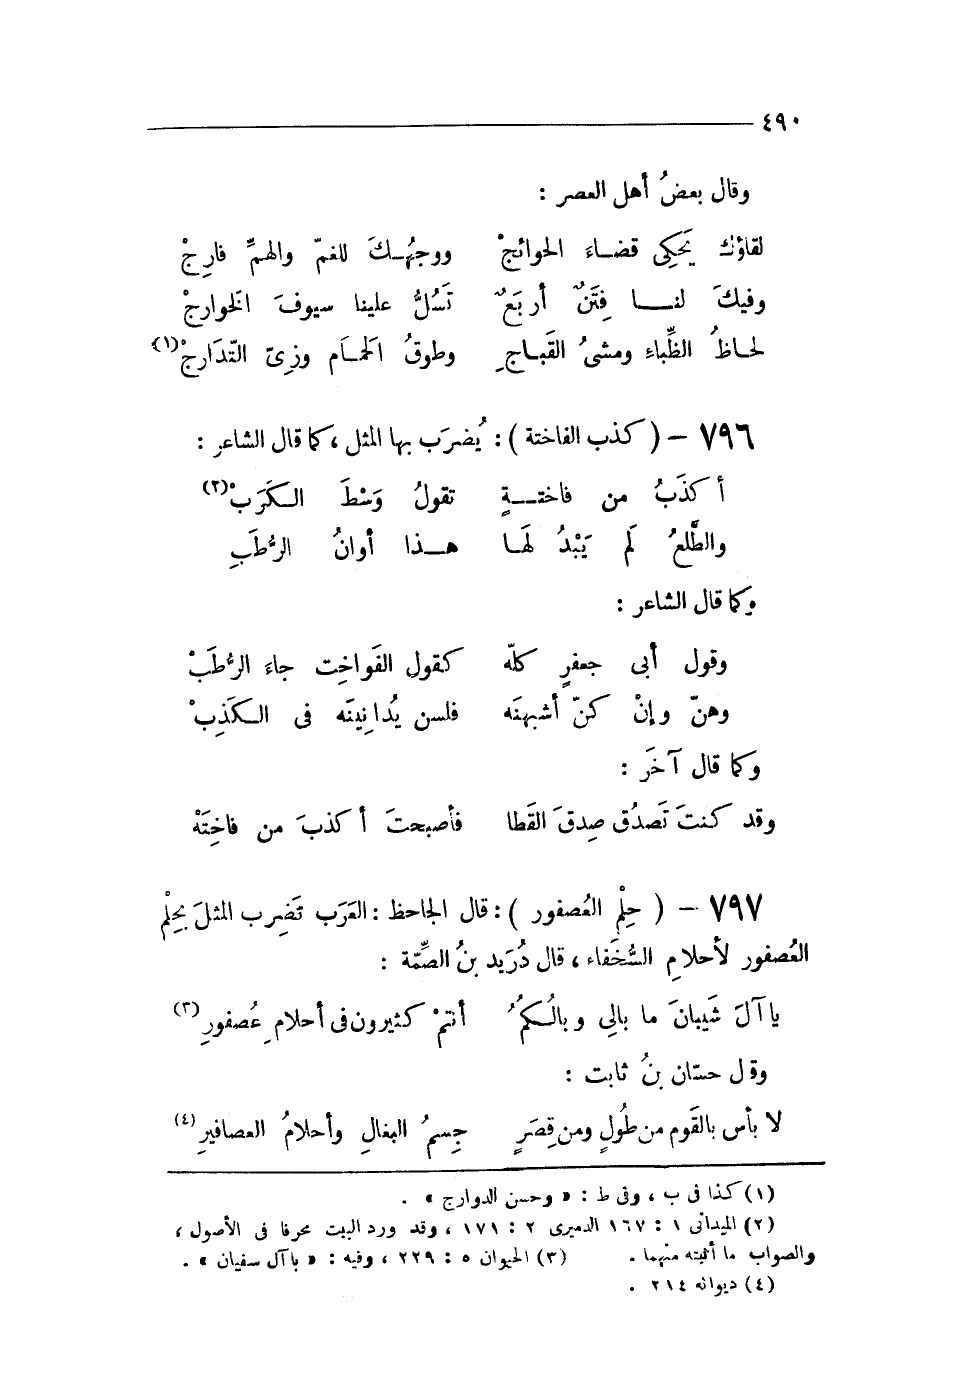 ٤٩٠
وقال بعضُ أهل العصر :
لقاؤك يَحكِى قضـاءَ الحوائجْ ووجهُـكَ للغمّ والهمِّ فارِجْ
وفيكَ لنــا فِتَنٌ أربَعٌ تَسُلُّ علينا سيوفَ الخوارجْ
لحـاظُ الظِّباءِ ومشىُ القَبـاجِ وطوقُ الحَمـَام وزِىّ التّدَارجْ(١)
٧٩٦ – ( كذب الفاختة ) : يُضرَب بها المثل ، كما قال الشاعر :
أكذَبُ من فاختــةٍ تقولُ وَسْطَ الـكَرَبْ(٢)
والطَّلعُ لَم يَبْدُ لَهَـا هـذا أوانُ الرُّطَبِ
وكما قال الشاعر :
وقول أبى جعفرٍ كلّه كقول الفَواخِت جاءَ الرُّطَبْ
وهنّ وإنْ كنّ أشبهنَه فلسن يُدانِينَه فى الـكَذِبْ
وكما قال آخَر :
وقد كنتَ تَصدُق صِدقَ القَطا فأصبحتَ أكذبَ من فاخِتَهْ
٧٩٧ – ( حِلْم العُصفور ) : قال الجاحظ : العَرَب تَضرِب المثلَ بحِلْم
العُصفور لأحلامِ السُّخَفاء ، قال دُرَيد بنُ الصِّمّة :
يا آلَ شَيبانَ ما بالِى وبالُـكمُ أنتمْ كثيرون فى أحلامِ عُصفورِ(٣)
وقل حسّان بنُ ثابت :
لا بأس بالقَوم من طُولٍ ومن قِصَرٍ جِسمُ البغالِ وأحلامُ العصافيرِ(٤)
(١) كذا فى ب ، وفى ط : « وحسن الدوارج » .
(٢) الميدانى ١ : ١٦٧ الدميرى ٢ : ١٧١ ، وقد ورد البيت محرفا فى الأصول ،
والصواب ما أثبته منهما . (٣) الحيوان ٥ : ٢٢٩ ، وفيه : « يا آل سفيان » .
(٤) ديوانه ٢١٤ .